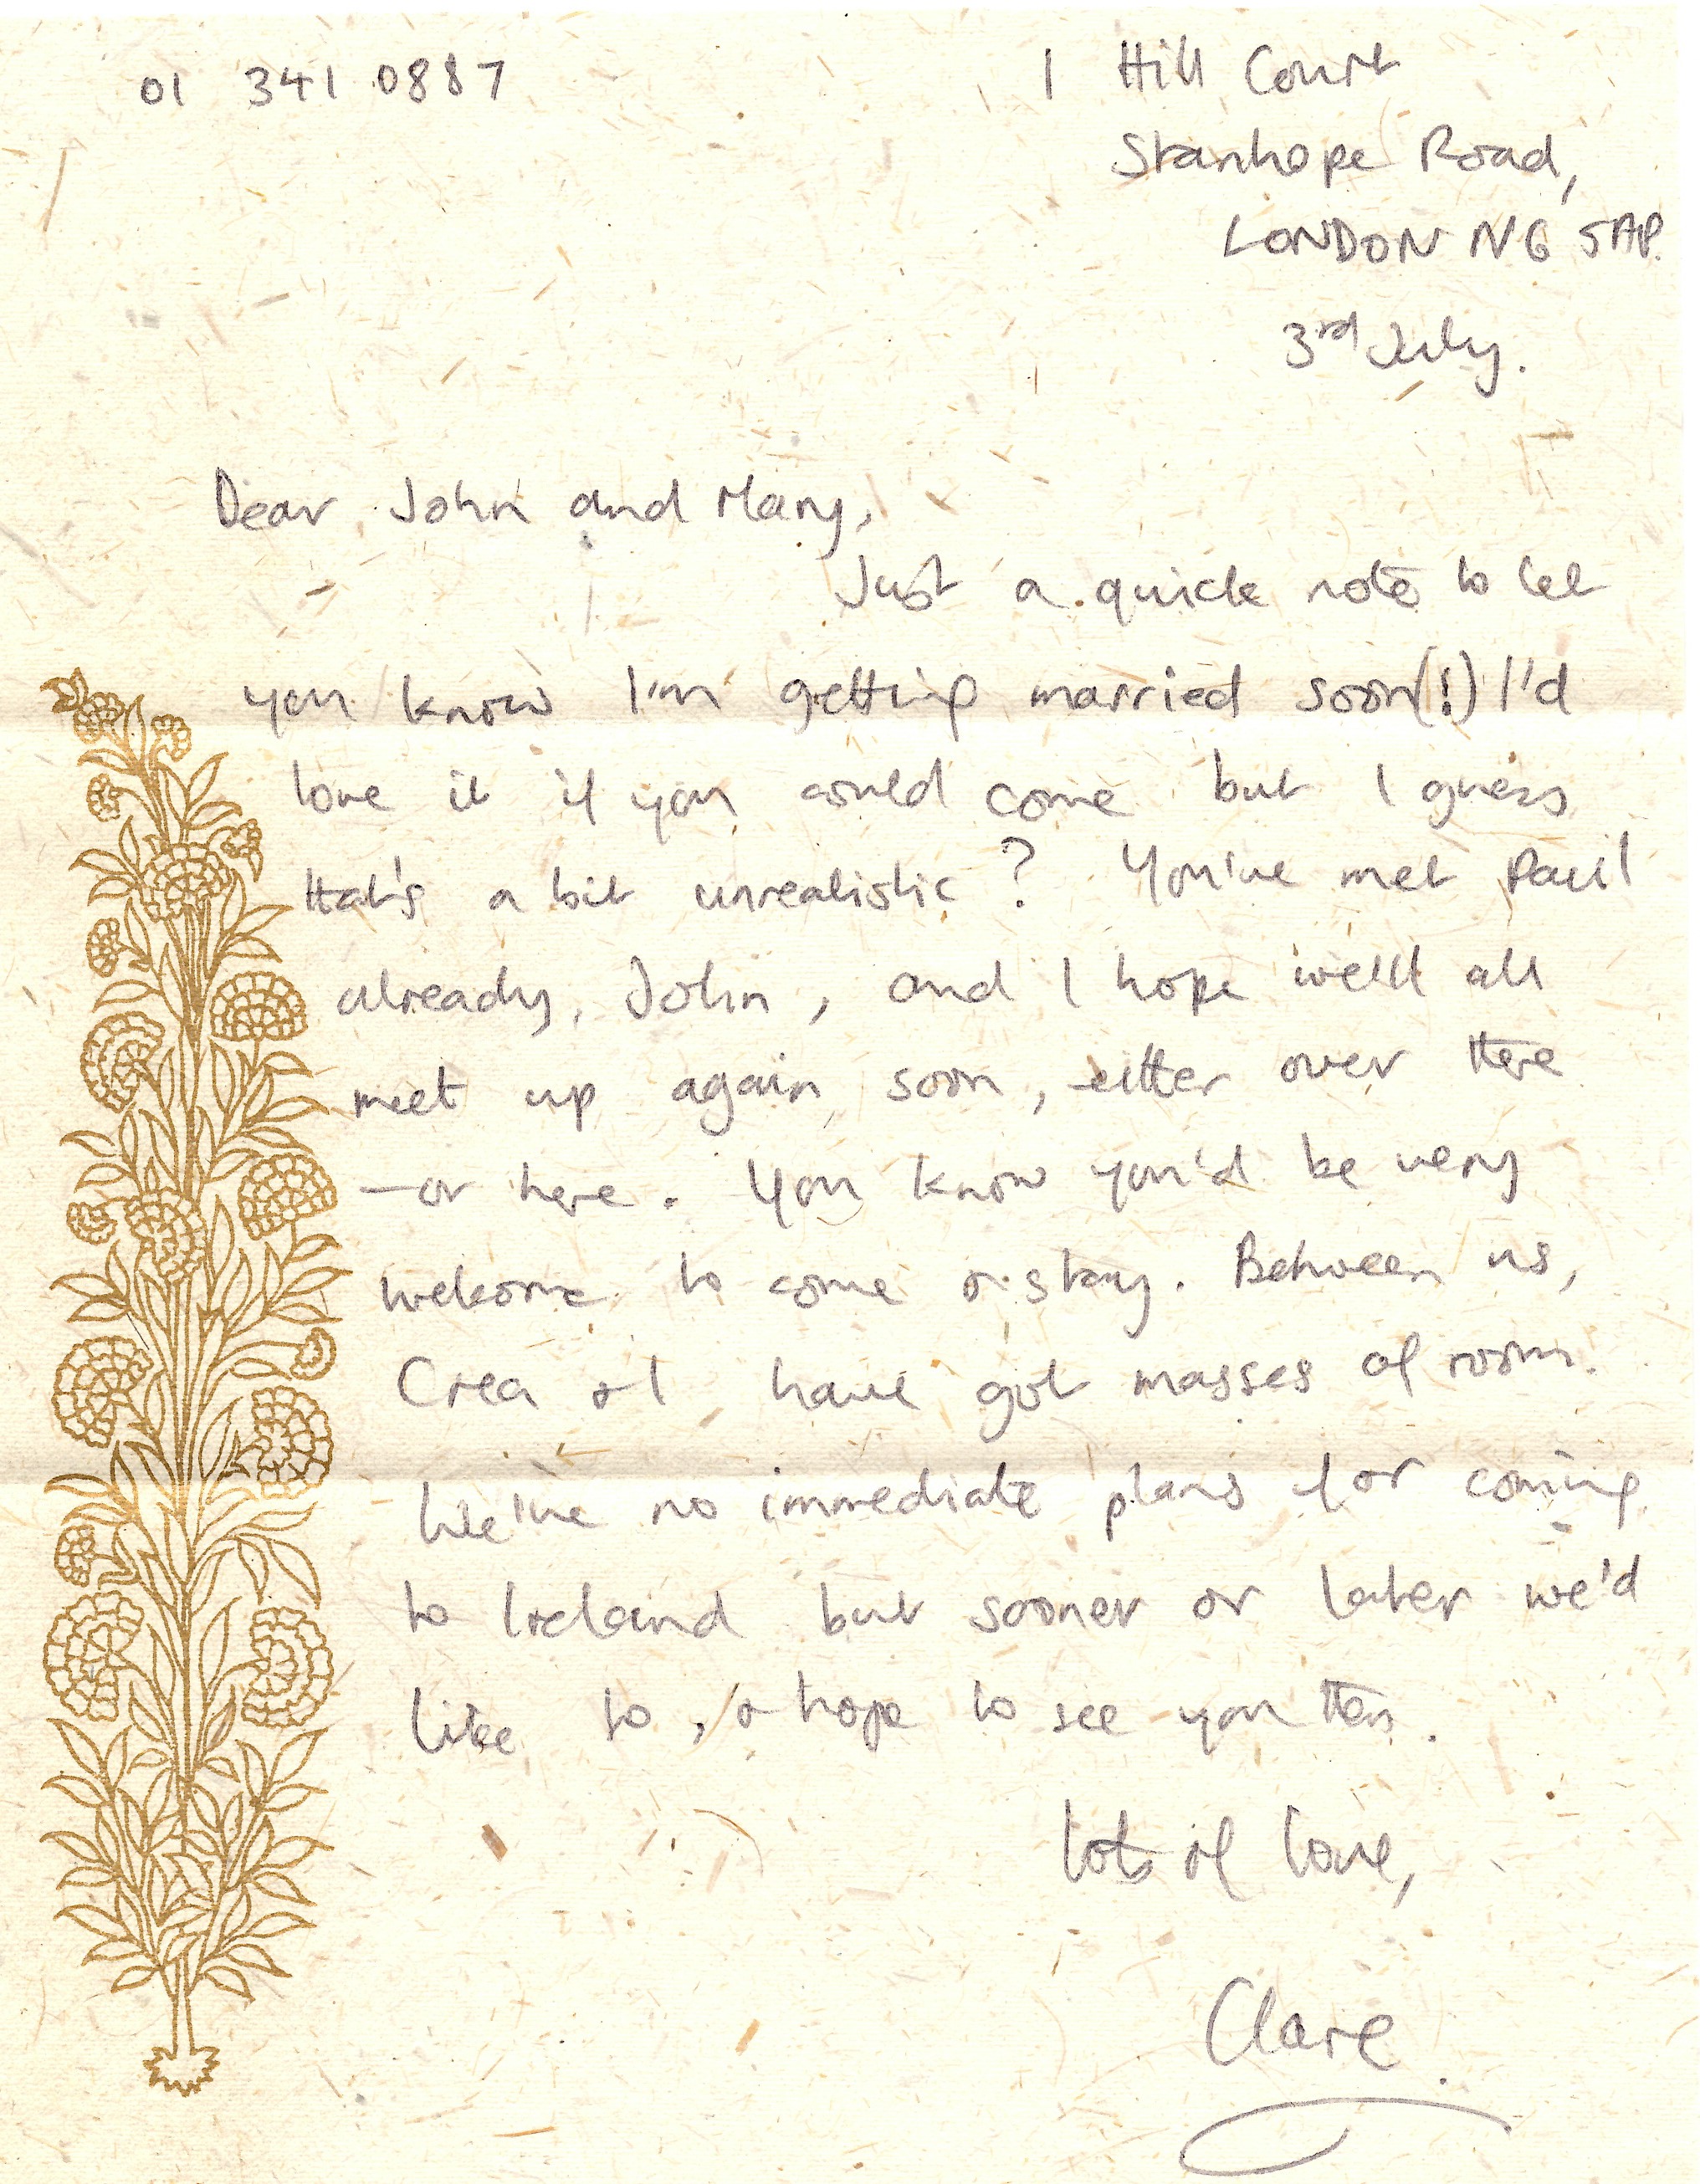 01 341 0887
1 Hill Court
Stanhope Road,
LONDON N6 5AP.
3rd July.
Dear John and Mary,
Just a quick note to let
you know I'm getting married soon(!) I'd
love it if you could come but I guess
that's a bit unrealistic? You've met Paul
already, John, and I hope we'll all
meet up again soon, either over there
- or here. You know you'd be very
welcome to come & stay. Between us,
Crea & I have got masses of room.
We've no immediate plans for coming
to Ireland but sooner or later we'd
like to, & hope to see you then.
Lots of love,
Clare.